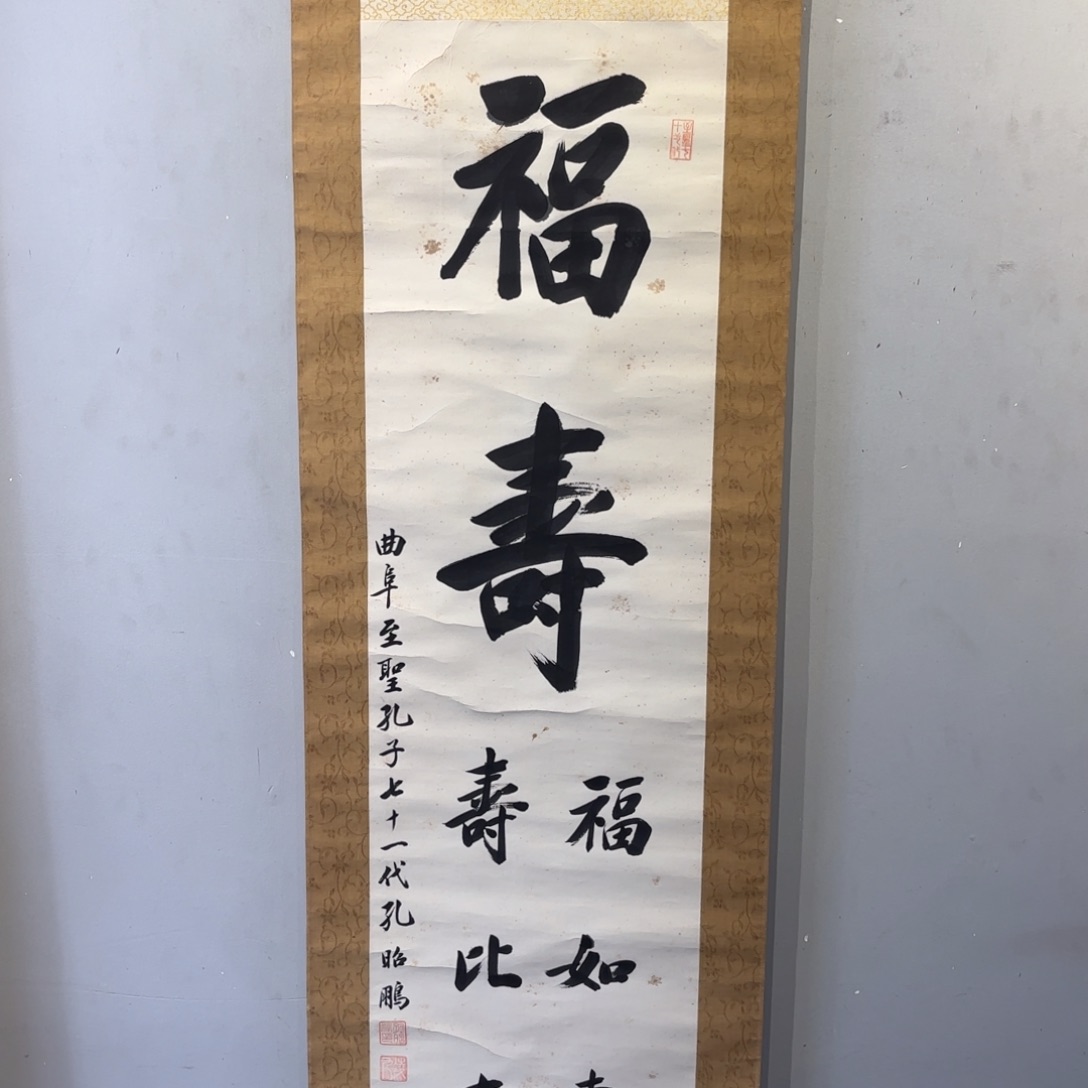 福壽
福如
壽比
曲阜至聖孔子七十一代孔昭鵬